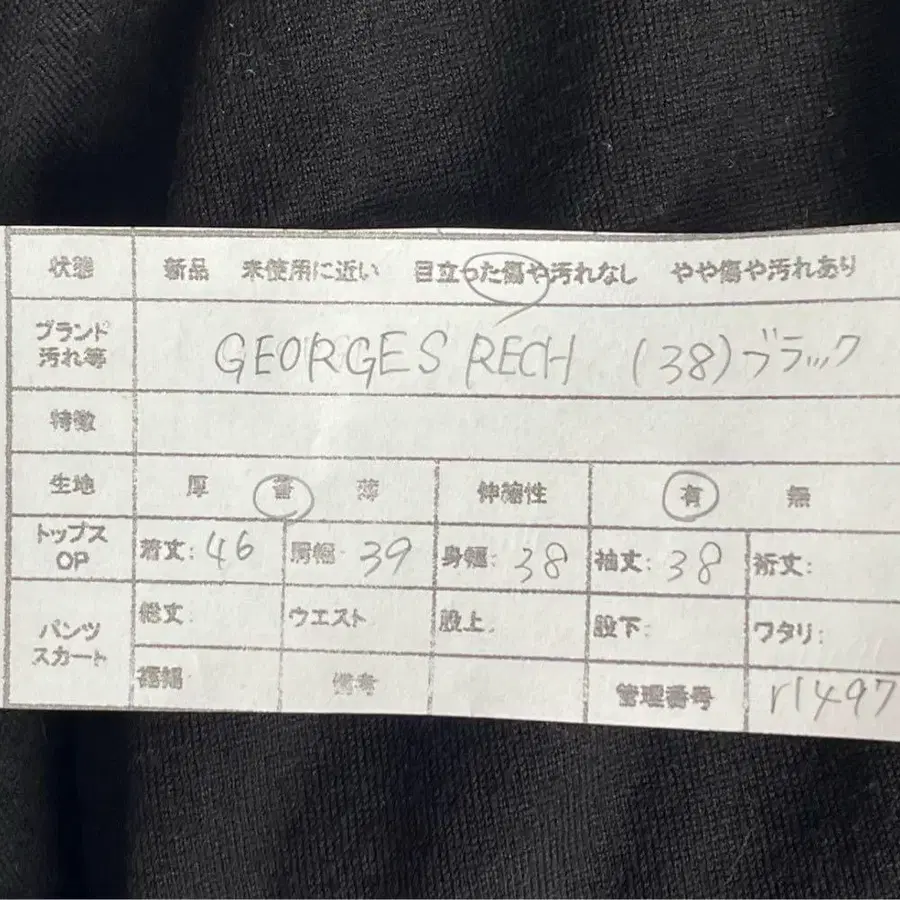 状態 新品 未使用に近い 目立った傷や汚れなし やや傷や汚れあり
ブランド
汚れ等 GEORGES RECH (38) ブラック
特徴
生地 厚 普 薄 伸縮性 有 無
トップス
OP 着丈: 46 肩幅: 39 身幅: 38 袖丈: 38 裄丈:
パンツ
スカート 総丈: ウエスト 股上: 股下: ワタリ:
裾幅 備考 管理番号 r1497